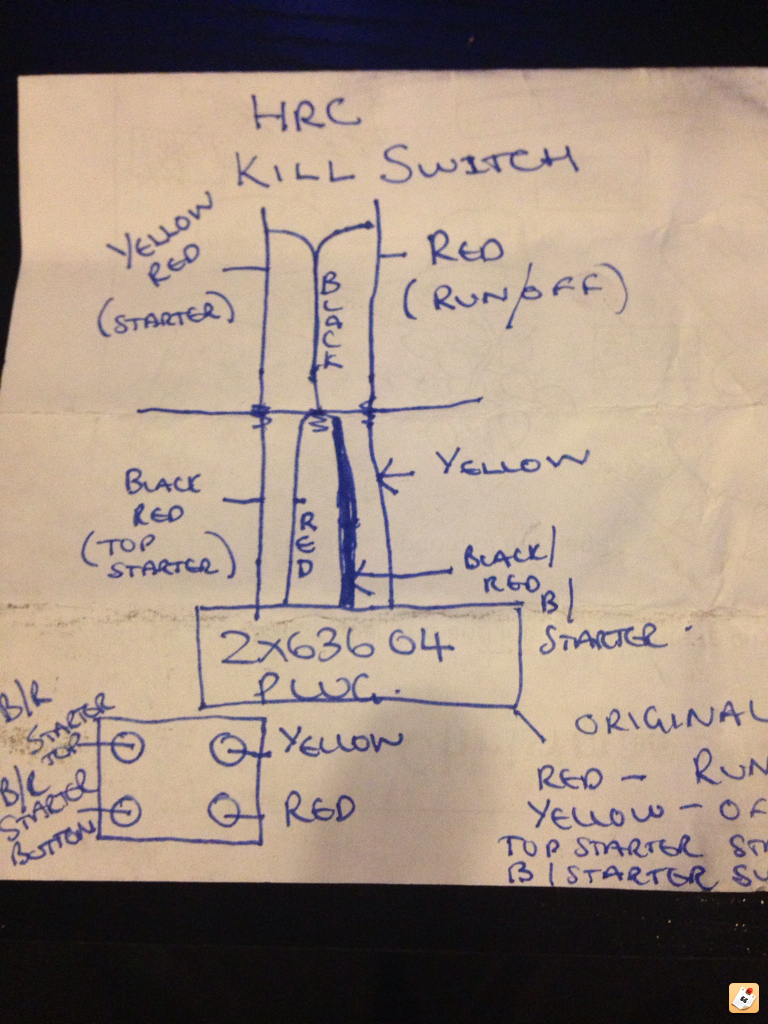 HRC
KILL SWITCH
YELLOW
RED
(STARTER)
BLACK
RED
(RUN/OFF)
YELLOW
BLACK
RED
(TOP
STARTER)
RED
BLACK/
RED
B/
STARTER
2X63604
PLUG.
B/R
STARTER
TOP
YELLOW
B/R
STARTER
BUTTON
RED
ORIGINAL
RED - RUN
YELLOW - OF
TOP STARTER ST
B/STARTER